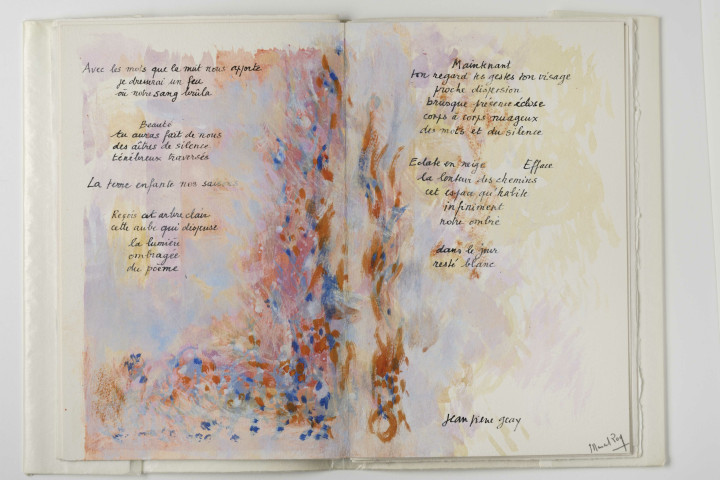 Avec les mots que la nuit nous apporte
je dresserai un feu
où notre sang brûla
Beauté
tu auras fait de nous
des aîtres de silence
ténébreux traversés
La terre enfante nos saisons
Reçois cet arbre clair
cette aube qui disperse
la lumière
ombragée
du poème
Maintenant
ton regard tes gestes ton visage
proche dispersion
brusque présence éclose
corps à corps nuageux
des mots et du silence
Eclate en neige Efface
la lenteur des chemins
cet espace qu'habite
infiniment
notre ombre
dans le jour
resté blanc
Jean Pierre Geay